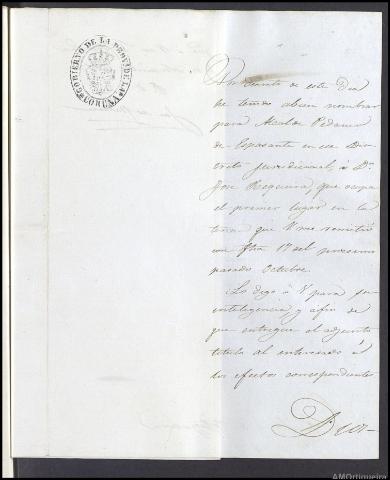 GOBIERNO DE LA PROV. DE LA
CORUÑA
Por decreto de este dia
he tenido a bien nombrar
para Alcalde Pedaneo
de Espasante en ese Dis
trito jurisdicional, á Dn
Jose Regueira, que ocupa
el primer lugar en la
terna que V me remitió
con fha 17 del proximo
pasado Octubre.
Lo digo á V para su
inteligencia, y á fin de
que entregue el adjunto
titulo al interesado á
los efectos correspondientes
Dios
AMOrtigueira